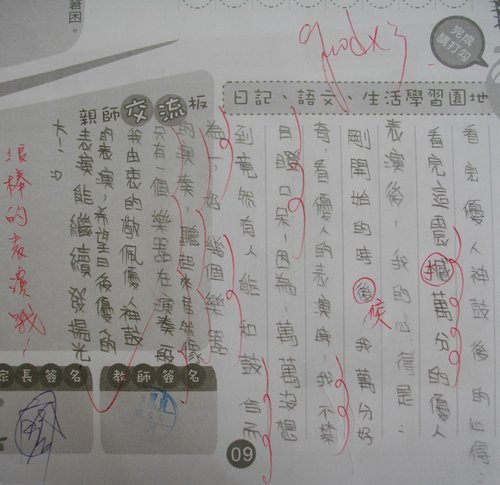 答困。
good x 3
完成
請打勾
日記、語文、生活學習園地
看完優人神鼓後的心得：
看完這震撼萬分的優人
表演後，我的心得是：
剛開始的時後，我萬分好
候
奇，看優人的表演時，我不禁
目瞪口呆，因為萬萬沒想
到竟然有人能把鼓合而
為一，好幾個樂器
的演奏，聽起來居然像
只有一個樂器在演奏
我由衷的敬佩優人神鼓
的表演，希望日後優人的
表演能繼續發揚光
大！
親師交流板
很棒的表演哦！
教師簽名
家長簽名
09